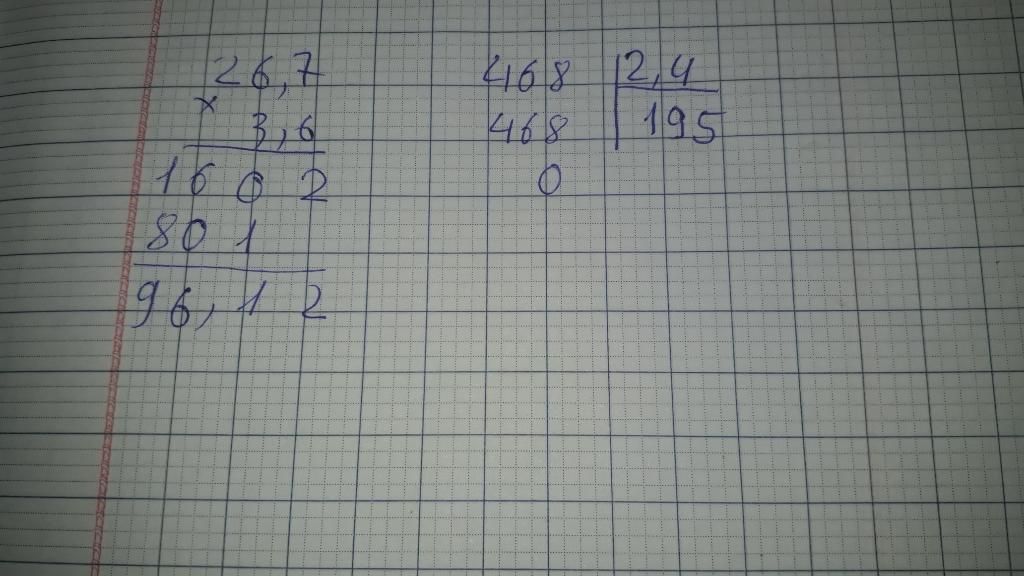 26,7
× 3,6
1602
801
96,12
468 | 2,4
468 | 195
0